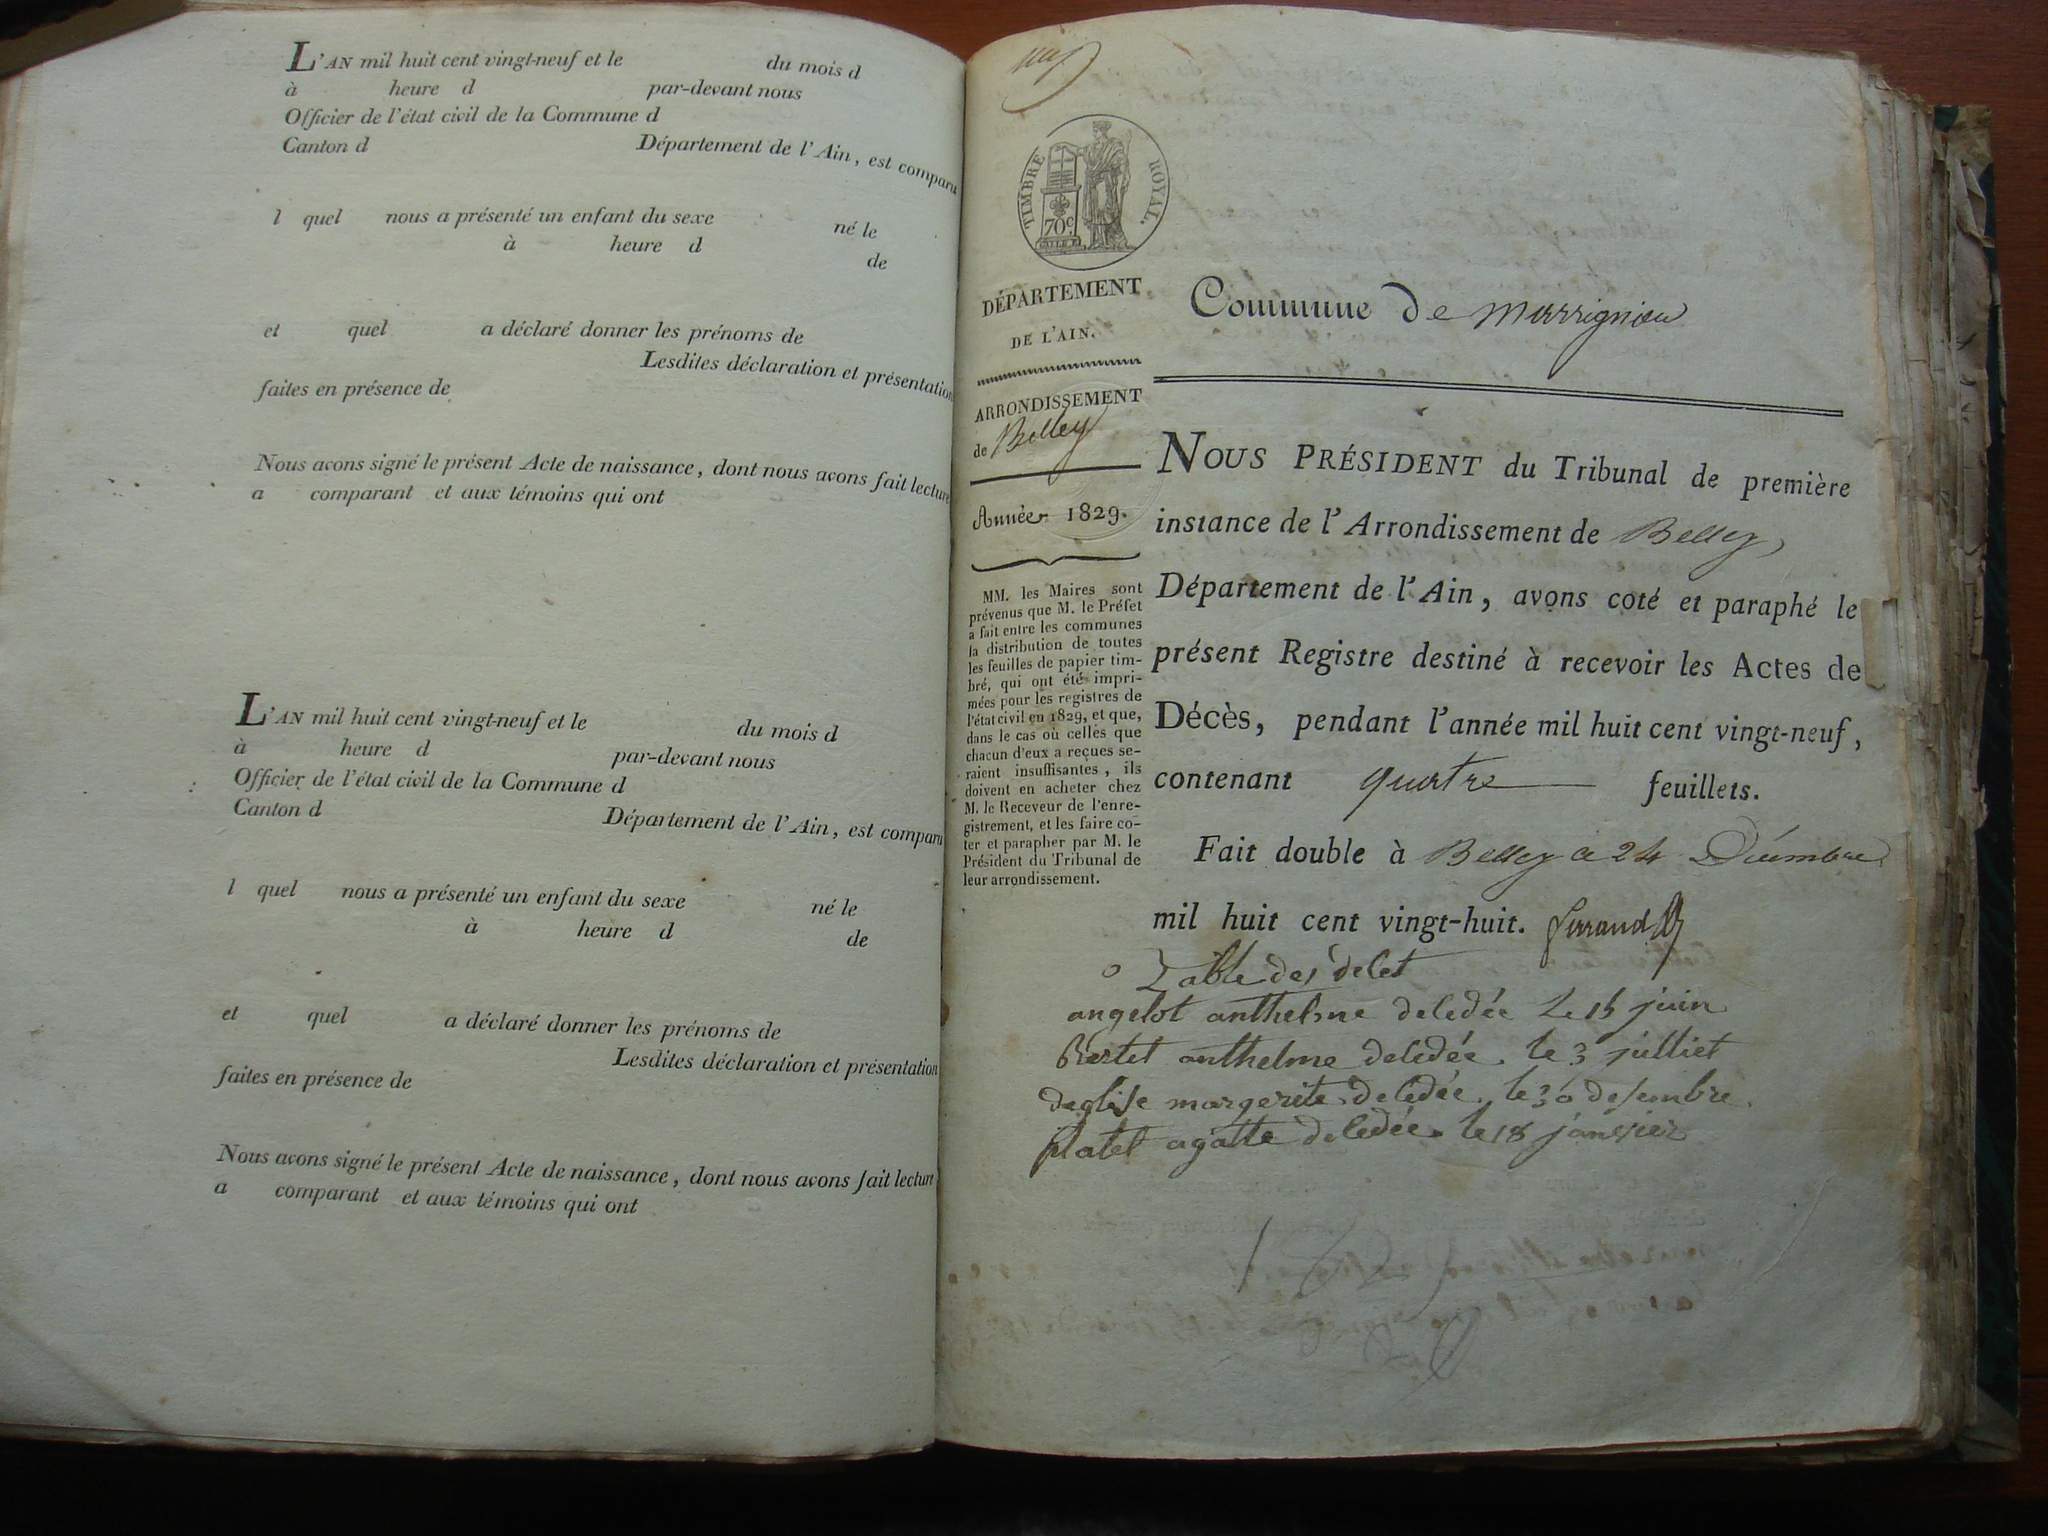 L'AN mil huit cent vingt-neuf et le du mois d
à heure d par-devant nous
Officier de l'état civil de la Commune d
Canton d Département de l'Ain, est comparu
l quel nous a présenté un enfant du sexe né le
à heure d de
et quel a déclaré donner les prénoms de
Lesdites déclaration et présentation
faites en présence de
Nous avons signé le présent Acte de naissance, dont nous avons fait lecture
a comparant et aux témoins qui ont
L'AN mil huit cent vingt-neuf et le du mois d
à heure d par-devant nous
Officier de l'état civil de la Commune d
Canton d Département de l'Ain, est comparu
l quel nous a présenté un enfant du sexe né le
à heure d de
et quel a déclaré donner les prénoms de
Lesdites déclaration et présentation
faites en présence de
Nous avons signé le présent Acte de naissance, dont nous avons fait lecture
a comparant et aux témoins qui ont
TIMBRE ROYAL.
70c
DÉPARTEMENT
DE L'AIN.
ARRONDISSEMENT
de Belley
Année 1829.
MM. les Maires sont
prévenus que M. le Préfet
a fait entre les communes
la distribution de toutes
les feuilles de papier tim-
bré, qui ont été impri-
mées pour les registres de
l'état civil en 1829, et que,
dans le cas où celles que
chacun d'eux a reçues se-
raient insuffisantes, ils
doivent en acheter chez
M. le Receveur de l'enre-
gistrement, et les faire co-
ter et parapher par M. le
Président du Tribunal de
leur arrondissement.
Commune De marignieu
NOUS PRÉSIDENT du Tribunal de première
instance de l'Arrondissement de Belley,
Département de l'Ain, avons coté et paraphé le
présent Registre destiné à recevoir les Actes de
Décès, pendant l'année mil huit cent vingt-neuf,
contenant quatre feuillets.
Fait double à Belley le 24 Décembre
mil huit cent vingt-huit.
Table des deset
angelot anthelme deledée le 15 juin
Bertet anthelme deledée le 3 julliet
deglise margerite deledée le 30 desembre
platel agatte deledée le 18 janvier